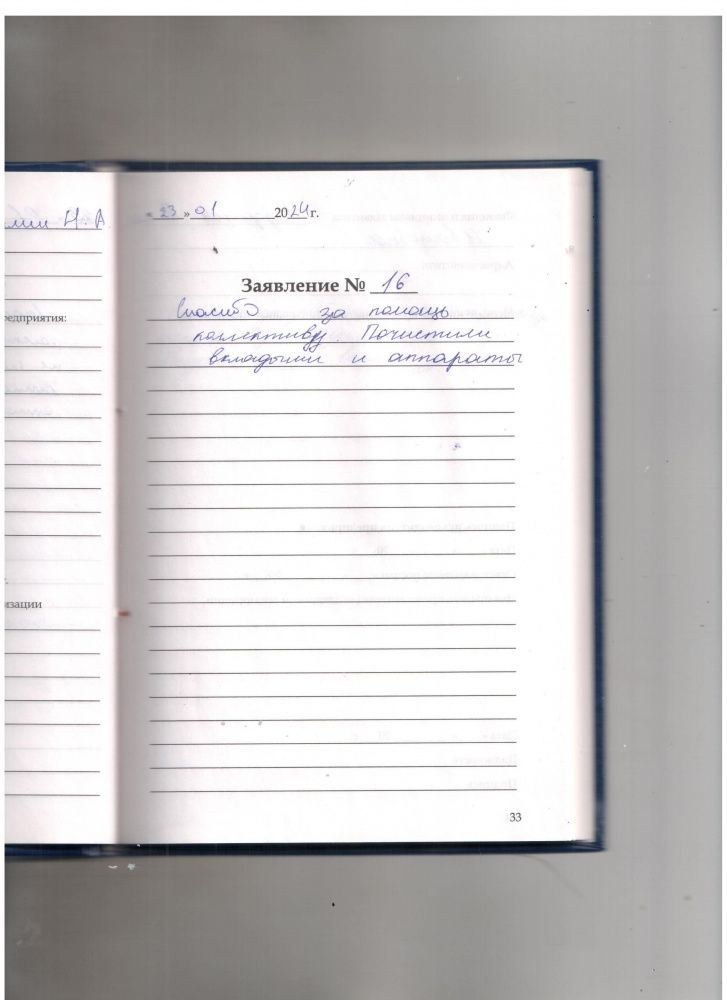 Н. А
едприятия:
изации
« 23 » 01 2024 г.
Заявление № 16
Спасибо за помощь
коллективу. Почистили
вкладыши и аппараты
33